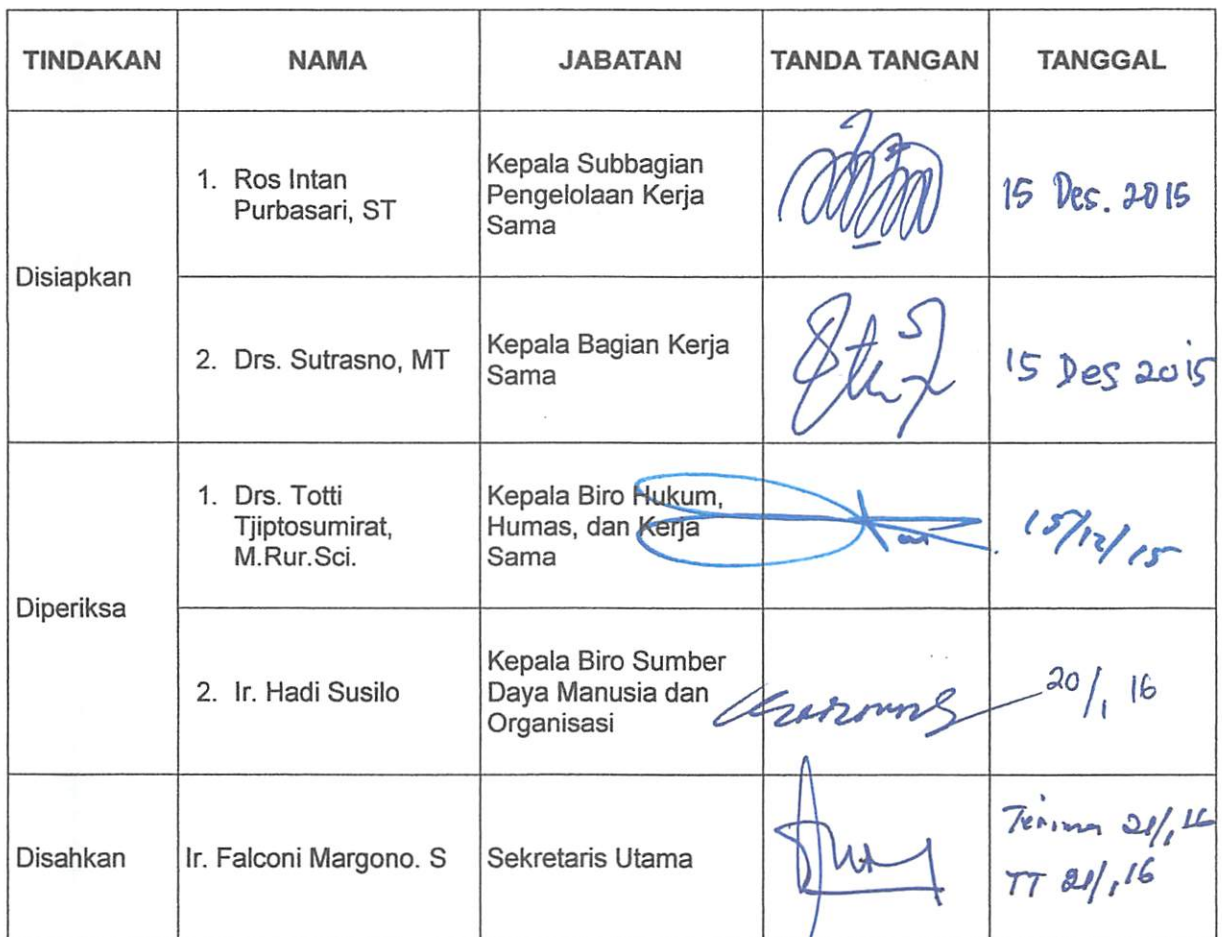 TINDAKAN NAMA JABATAN TANDA TANGAN TANGGAL
Disiapkan
1. Ros Intan
Purbasari, ST
Kepala Subbagian
Pengelolaan Kerja
Sama
15 Des. 2015
2. Drs. Sutrasno, MT
Kepala Bagian Kerja
Sama
15 Des 2015
Diperiksa
1. Drs. Totti
Tjiptosumirat,
M.Rur.Sci.
Kepala Biro Hukum,
Humas, dan Kerja
Sama
15/12/15
2. Ir. Hadi Susilo
Kepala Biro Sumber
Daya Manusia dan
Organisasi
20/1 16
Disahkan
Ir. Falconi Margono. S
Sekretaris Utama
Terima 21/1 16
TT 21/1 16